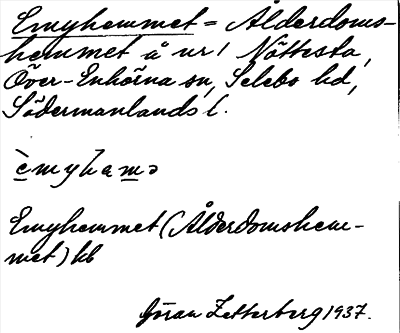 Emyhemmet = Ålderdoms-
hemmet å nr 1 Nöttesta,
Över-Enhörna sn, Selebo hd,
Södermanlands l.
èmyhamə
Emyhemmet (Ålderdomshem-
met) hb
Göran Zetterberg 1937.